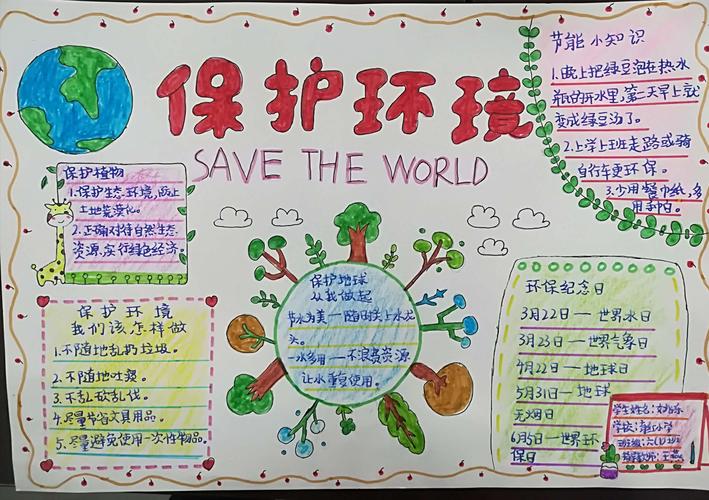 保护环境
SAVE THE WORLD
节能小知识
1.晚上把绿豆泡在热水
瓶的开水里,第二天早上就
变成绿豆汤了。
2.上学上班走路或骑
自行车更环保。
3.少用餐巾纸,多
用手帕。
保护植物
1.保护生态环境,防止
土地荒漠化。
2.正确对待自然生态
资源,实行绿色经济
保护环境
我们该怎样做
1.不随地乱扔垃圾。
2.不随地吐痰。
3.不乱砍乱伐。
4.尽量节省文具用品。
5.尽量避免使用一次性物品。
保护地球
从我做起
节水为美—随时关上水龙
头。
一水多用—不浪费资源
让水重复使用。
环保纪念日
3月22日—世界水日
3月23日—世界气象日
4月22日—地球日
5月31日—地球
无烟日
6月5日—世界环
保日
学生姓名:
学校:小学
班级:六(1)班
指导教师:王燕